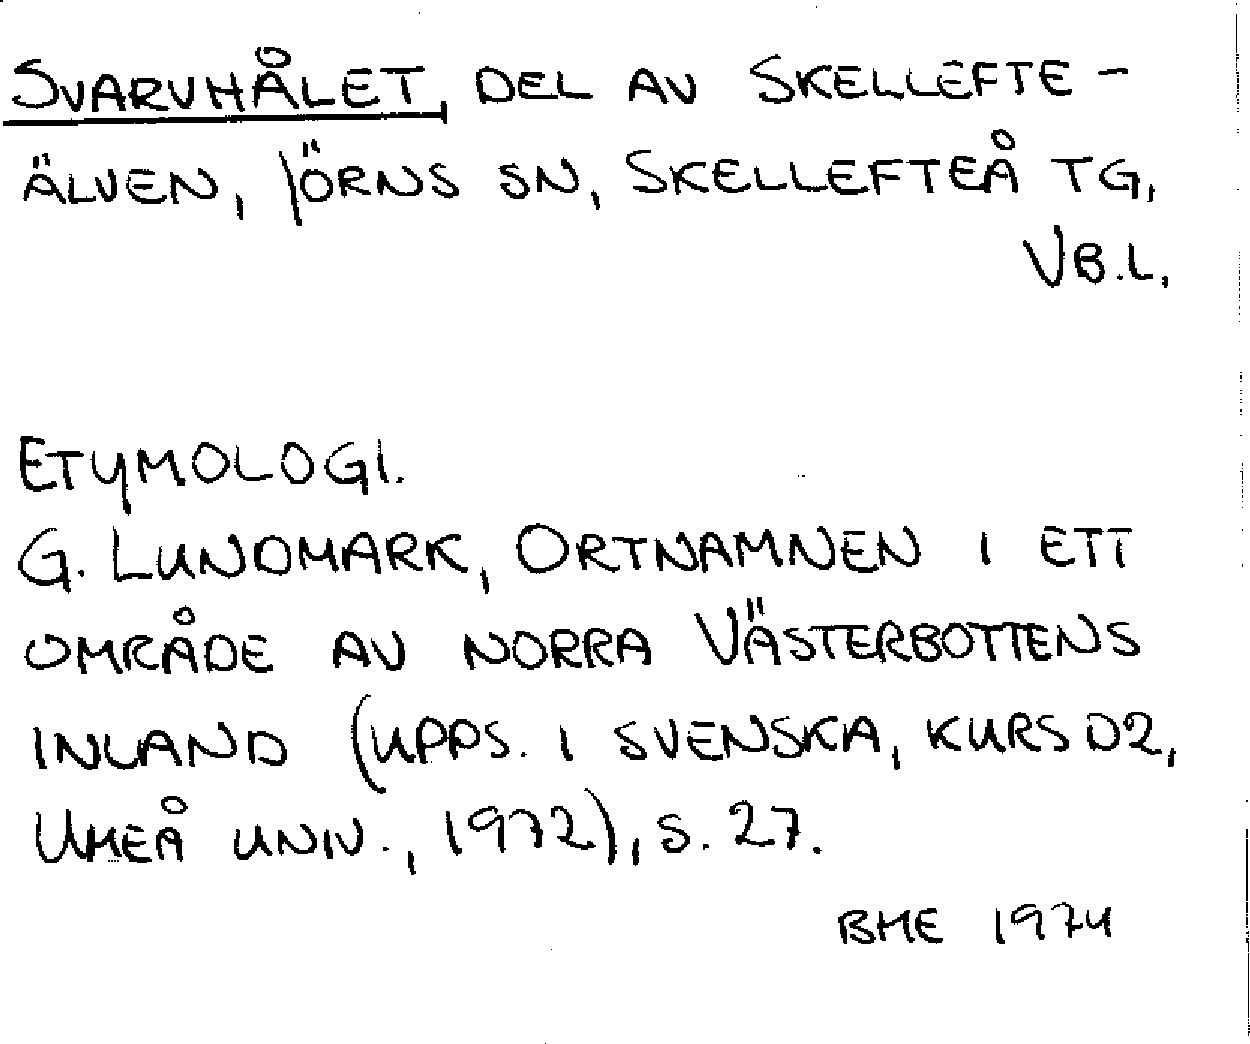 SVARVHÅLET, DEL AV SKELLEFTE-
ÄLVEN, JÖRNS SN, SKELLEFTEÅ TG,
VB.L.
ETYMOLOGI.
G. LUNDMARK, ORTNAMNEN I ETT
OMRÅDE AV NORRA VÄSTERBOTTENS
INLAND (UPPS. I SVENSKA, KURS D2,
UMEÅ UNIV., 1972), S. 27.
BME 1974